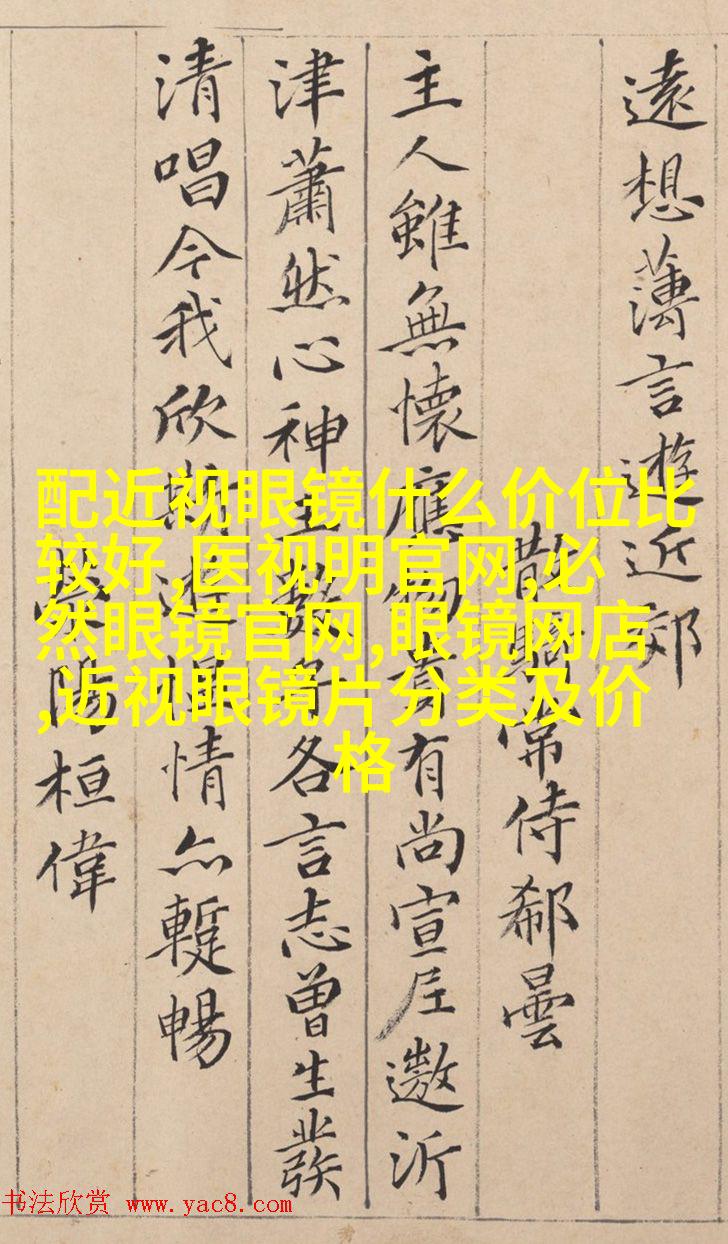 遠想薄言遊近郊
散騎常侍郗曇
主人雖無懷應物貴有尚宣尼遨沂
津蕭然心神王數子各言志曾生發
清唱今我欣斯遊慍情亦暫暢
滎陽桓偉
配近视眼镜什么价位比
较好,医视明官网,必
然眼镜官网,眼镜网店
,近视眼镜片分类及价
格
书法欣赏 www.yac8.com